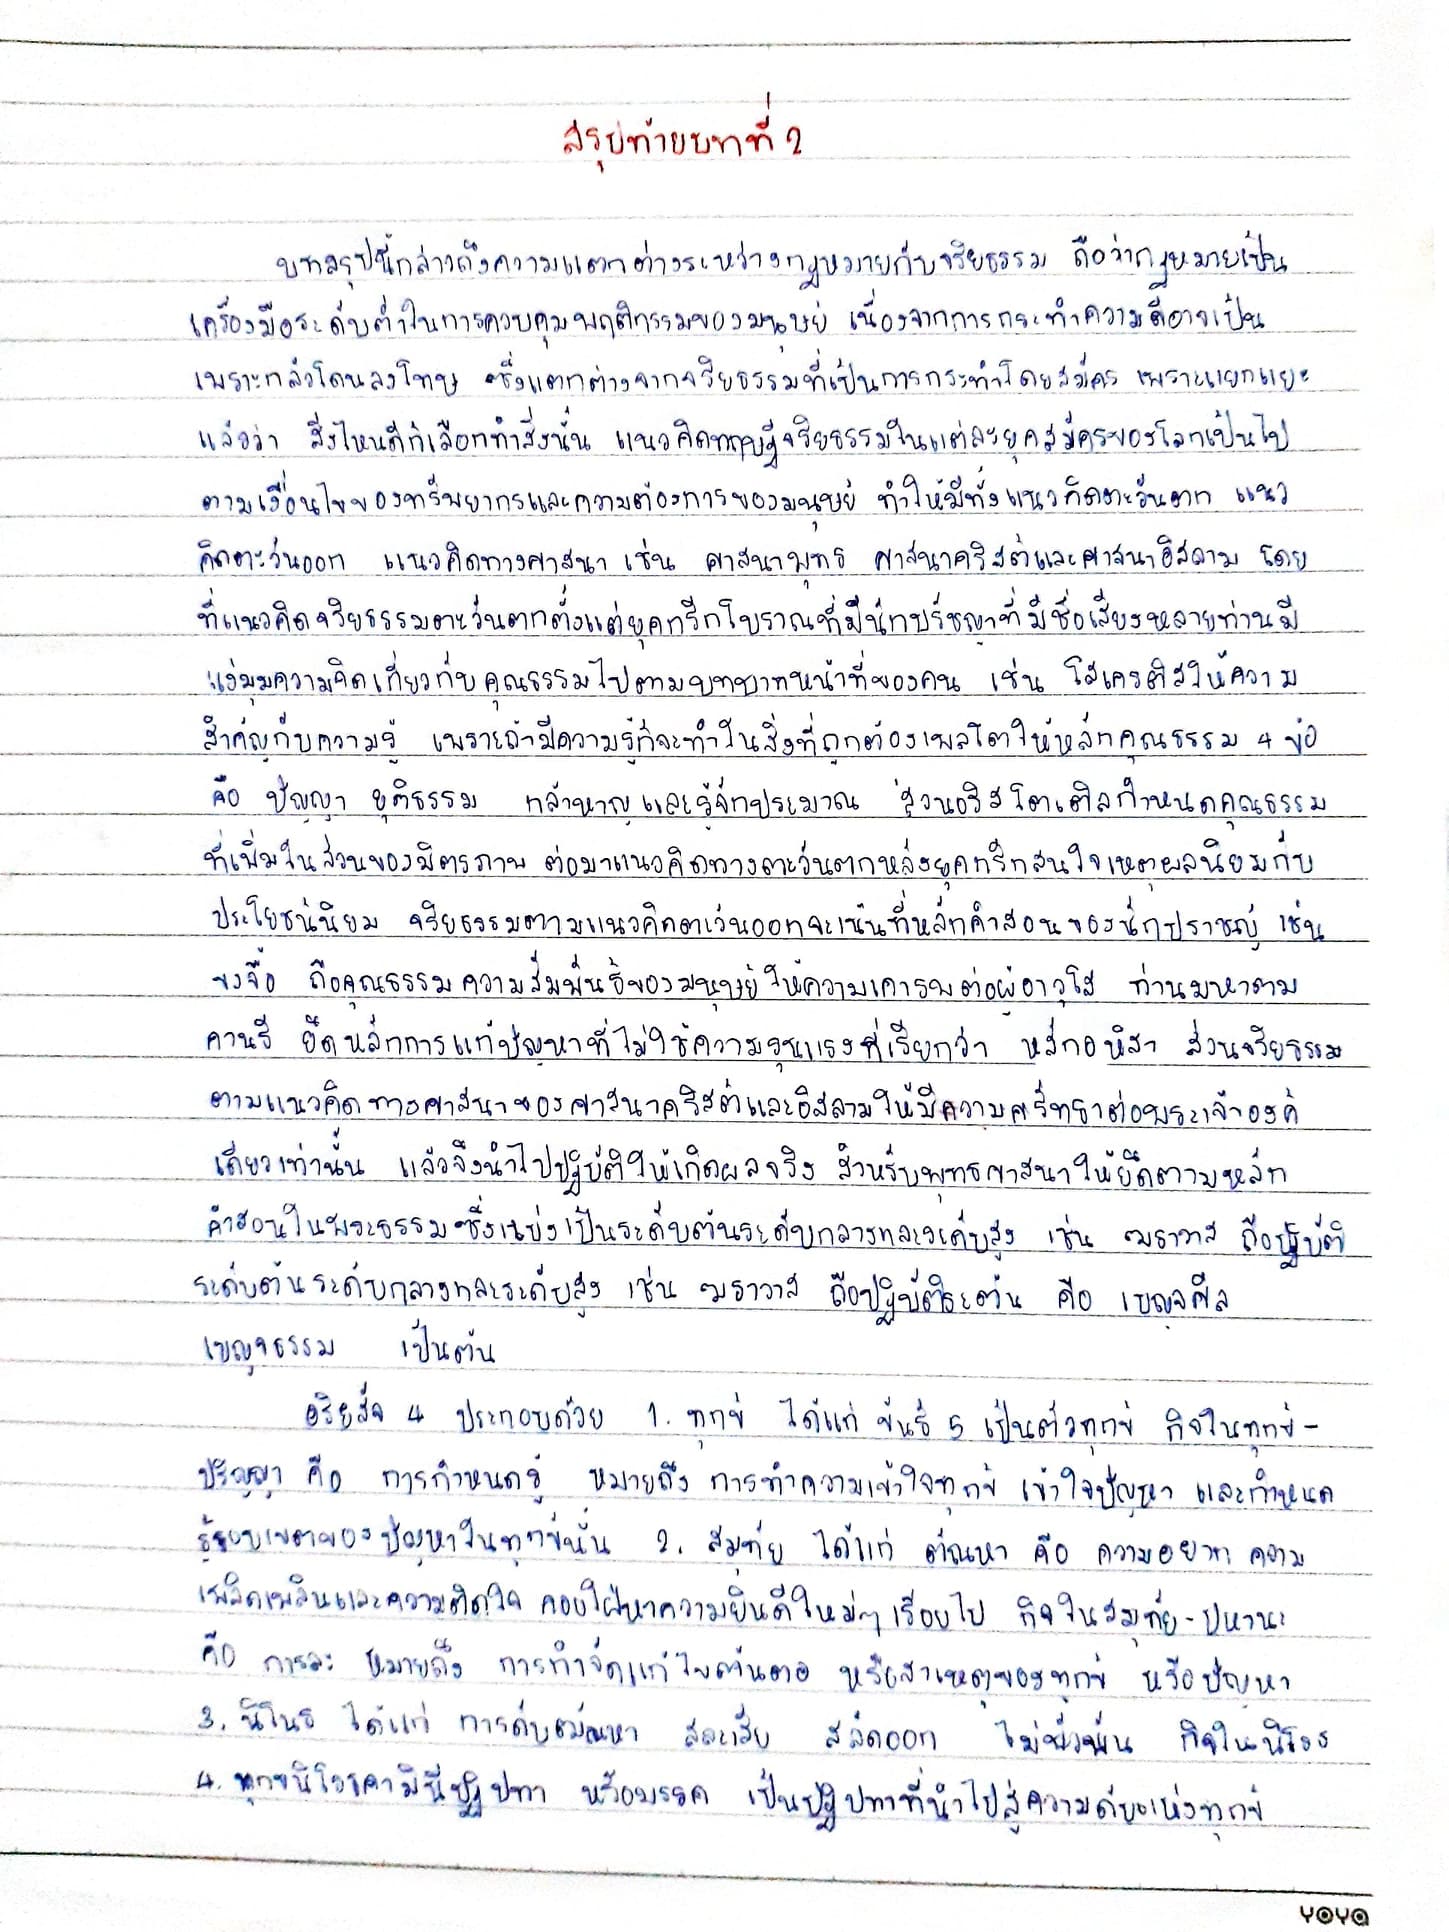 สรุปท้ายบทที่ 2
บทสรุปนี้กล่าวถึงความแตกต่างระหว่างกฎหมายกับจริยธรรม ถือว่ากฎหมายเป็น
เครื่องมือระดับต่ำในการควบคุมพฤติกรรมของมนุษย์ เนื่องจากการกระทำความดีอาจเป็น
เพราะกลัวโดนลงโทษ ซึ่งแตกต่างจากจริยธรรมที่เป็นการกระทำโดยสมัคร เพราะแยกแยะ
แล้วว่า สิ่งไหนดีก็เลือกทำสิ่งนั้น แนวคิดทฤษฎีจริยธรรมในแต่ละยุคสมัยของโลกเป็นไป
ตามเงื่อนไขของทรัพยากรและความต้องการของมนุษย์ ทำให้มีทั้งแนวคิดตะวันตก แนว
คิดตะวันออก แนวคิดทางศาสนา เช่น ศาสนาพุทธ ศาสนาคริสต์และศาสนาอิสลาม โดย
ที่แนวคิดจริยธรรมตะวันตกตั้งแต่ยุคกรีกโบราณที่มีนักปรัชญาที่มีชื่อเสียงหลายท่านมี
แง่มุมความคิดเกี่ยวกับคุณธรรมไปตามบทบาทหน้าที่ของคน เช่น โสเครติสให้ความ
สำคัญกับความรู้ เพราะถ้ามีความรู้ก็จะทำในสิ่งที่ถูกต้องเพลโตให้หลักคุณธรรม 4 ข้อ
คือ ปัญญา ยุติธรรม กล้าหาญและรู้จักประมาณ ส่วนอริสโตเติลกำหนดคุณธรรม
ที่เพิ่มในส่วนของมิตรภาพ ต่อมาแนวคิดทางตะวันตกหลังยุคกรีกสนใจเหตุผลนิยมกับ
ประโยชน์นิยม จริยธรรมตามแนวคิดตะวันออกจะเน้นที่หลักคำสอนของนักปราชญ์ เช่น
ขงจื้อ ถือคุณธรรมความสัมพันธ์ของมนุษย์ให้ความเคารพต่อผู้อาวุโส ท่านมหาตม
คานธี ยึดหลักการแก้ปัญหาที่ไม่ใช้ความรุนแรงที่เรียกว่า หลักอหิสา ส่วนจริยธรรม
ตามแนวคิดทางศาสนาของศาสนาคริสต์และอิสลามให้มีความศรัทธาต่อพระเจ้าองค์
เดียวเท่านั้น แล้วจึงนำไปปฏิบัติให้เกิดผลจริง สำหรับพุทธศาสนาให้ยึดตามหลัก
คำสอนในพระธรรมซึ่งแบ่งเป็นระดับต้นระดับกลางและระดับสูง เช่น ฆราวาส ถือปฏิบัติ
ระดับต้นระดับกลางและระดับสูง เช่น ฆราวาส ถือปฏิบัติระดับต้น คือ เบญจศีล
เบญจธรรม เป็นต้น
อริยสัจ 4 ประกอบด้วย 1. ทุกข์ ได้แก่ ขันธ์ 5 เป็นตัวทุกข์ กิจในทุกข์-
ปริญญา คือ การกำหนดรู้ หมายถึง การทำความเข้าใจทุกข์ เข้าใจปัญหา และกำหนด
รู้ขอบเขตของปัญหาในทุกข์นั้น 2. สมุทัย ได้แก่ ตัณหา คือ ความอยาก ความ
เพลิดเพลินและความติดใจ คอยใฝ่หาความยินดีใหม่ๆ เรื่อยไป กิจในสมุทัย-ปหานะ
คือ การละ หมายถึง การกำจัดแก้ไขต้นตอ หรือสาเหตุของทุกข์ หรือปัญหา
3. นิโรธ ได้แก่ การดับตัณหา สละเสีย สลัดออก ไม่พัวพัน กิจในนิโรธ
4. ทุกขนิโรธคามินีปฏิปทา หรือมรรค เป็นปฏิปทาที่นำไปสู่ความดับแห่งทุกข์
YOYA